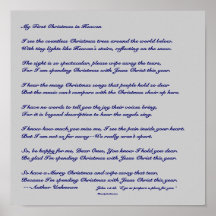 My First Christmas in Heaven
I see the countless Christmas trees around the world below.
With tiny lights like Heaven's stairs, reflecting on the snow.
The sight is so spectacular, please wipe away the tears,
For I am spending Christmas with Jesus Christ this year.
I hear the many Christmas songs that people hold so dear
But the music can't compare with the Christmas choir up here.
I have no words to tell you the joy their voices bring,
For it is beyond description to hear the angels sing.
I know how much you miss me, I see the pain inside your heart.
But I am not so far away—We really aren't apart.
So, be happy for me, Dear Ones, You know I hold you dear.
Be glad I'm spending Christmas with Jesus Christ this year.
So have a Merry Christmas and wipe away that tear,
Because I'm spending Christmas with Jesus Christ this year.
-- Author Unknown
John 14:2 "I go to prepare a place for you"